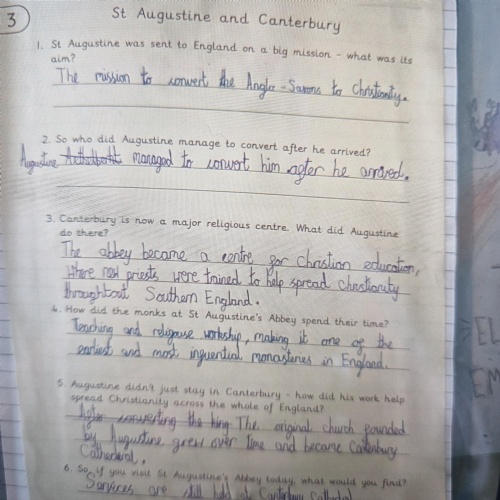 3
St Augustine and Canterbury
1. St Augustine was sent to England on a big mission - what was its
aim?
The mission to convert the Anglo-Saxons to Christianity.
2. So who did Augustine manage to convert after he arrived?
Augustine managed to convert him after he arrived.
3. Canterbury is now a major religious centre. What did Augustine
do there?
The abbey became a centre for Christian education,
where new priests were trained to help spread christianity
throughout Southern England.
4. How did the monks at St Augustine's Abbey spend their time?
Teaching and religouse workship, making it one of the
earliest and most influential monasteries in England.
5. Augustine didn't just stay in Canterbury - how did his work help
spread Christianity across the whole of England?
After converting the king The original church founded
by Augustine grew over time and became Canterbury
Cathederal.
6. So, if you visit St Augustine's Abbey today, what would you find?
Services are still held Canterbury Cathedral
EL
EM